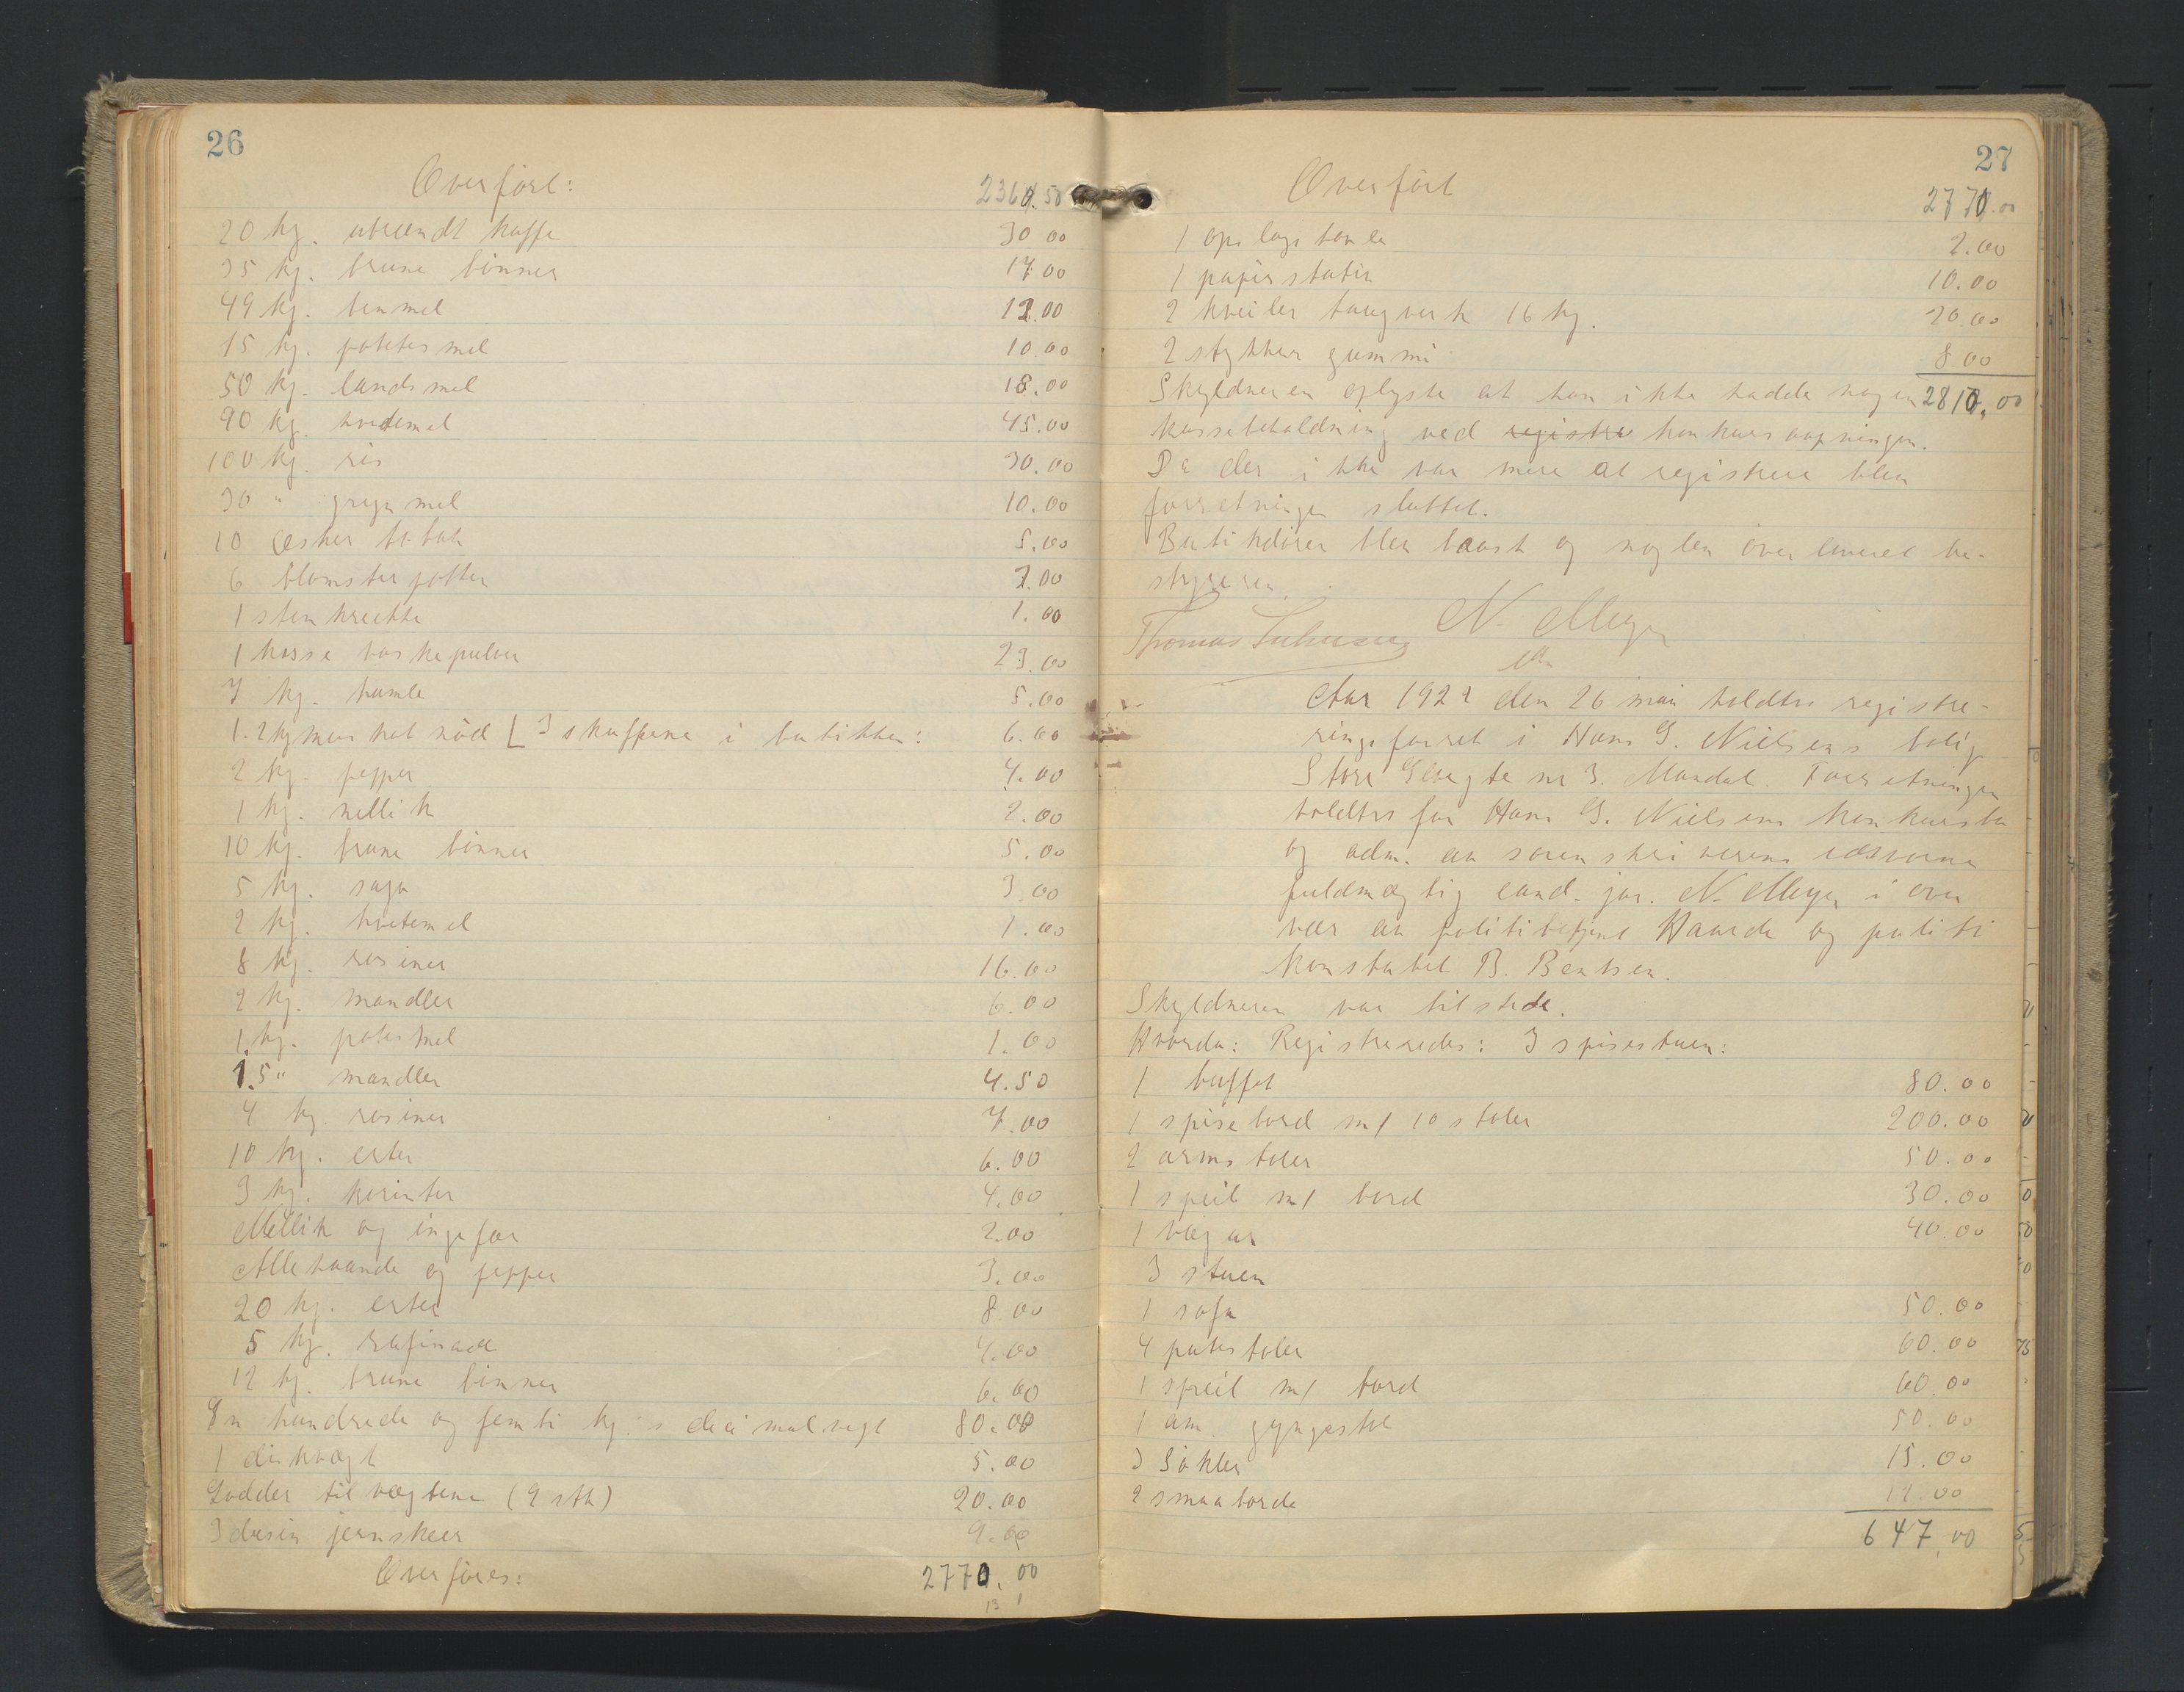 26
Overført: 2360.50
20 kg. ubrændt kaffe 30 00
35 kg. brune bønner 17 00
49 kg. benmel 12.00
15 kg. potetesmel 10.00
50 kg. landsmel 18.00
90 kg. hvedemel 45.00
100 kg. ris 30.00
30 " grynmel 10.00
10 æsker tobak 5.00
6 blomsterpotter 2.00
1 stenkrukke 1.00
1 kasse vaskepulver 23.00
7 kg. humle 5.00
1.2 kg muskatnød [I skuffene i butikken: 6.00
2 kg. pepper 4.00
1 kg. nellik 2.00
10 kg. brune bønner 5.00
5 kg. sago 3.00
2 kg. hvetemel 1.00
8 kg. rosiner 16.00
2 kg. mandler 6.00
1. kg. potetmel 1.00
1.5 " mandler 4.50
4 kg. rosiner 7.00
10 kg. erter 6.00
3 kg. korinter 4.00
Nellik og ingefær 2.00
Allehaande og pepper 3.00
20 kg. erter 8.00
5 kg. rafinade 4.00
12 kg. brune bønner 6.00
En hundrede og femti kg.s decimalvegt 80.00
1 diskvægt 5.00
Lodder til vægtene (9 stk) 20.00
3 dusin jernskeer 9.00
Overføres: 2770.00
13 1
27
Overført 2770.00
1 opslagstavle 2.00
1 papirstativ 10.00
2 kveiler taugverk 16 kg. 20.00
2 stykker gummi 8.00
Skyldneren oplyste at han ikke hadde nogen 2810.00
kassebeholdning ved registre konkursaapningen.
Da der ikke var mere at registrere blev
forretningen sluttet.
Butikdøren blev laast og nøglen overleveret be-
styreren.
N. Meyer
Thomas
Aar 1922 den 26 mai holdtes registre-
ringsforret i Hans G. Nielsens bolig
Store Elvegte nr 3. Mandal. Forretningen
holdtes for Hans G. Nielsens konkursbo
og adm. av sorenskriverens edsvorne
fuldmægtig cand. jur. N. Meyer i over
vær av politibetjent Haarde og politi
konstabel B. Bentsen.
Skyldneren var tilstede.
Hvorda: Registreredes: I spisestuen:
1 buffet 80.00
1 spisebord m/ 10 stoler 200.00
2 armstoler 50.00
1 speil m/ bord 30.00
1 vægur 40.00
I stuen
1 sofa 50.00
4 putestoler 60.00
1 speil m/ bord 60.00
1 am. gyngestol 50.00
3 Søkler 15.00
2 smaaborde 12.00
647,00